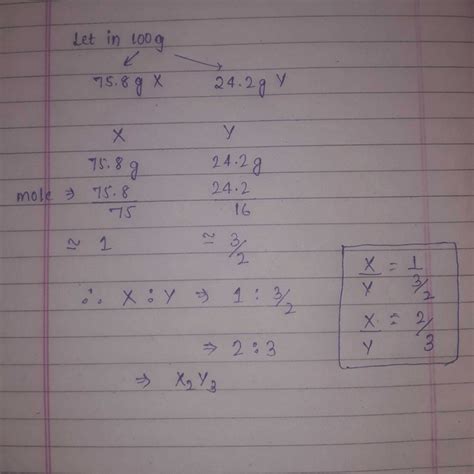 Let in 100g
75.8g X 24.2g Y
X Y
75.8g 24.2g
mole ⇒ 75.8/75 24.2/16
≅ 1 ≅ 3/2
∴ X : Y ⇒ 1 : 3/2
⇒ 2 : 3
⇒ X₂Y₃
X/Y = 1/3/2
X/Y = 2/3